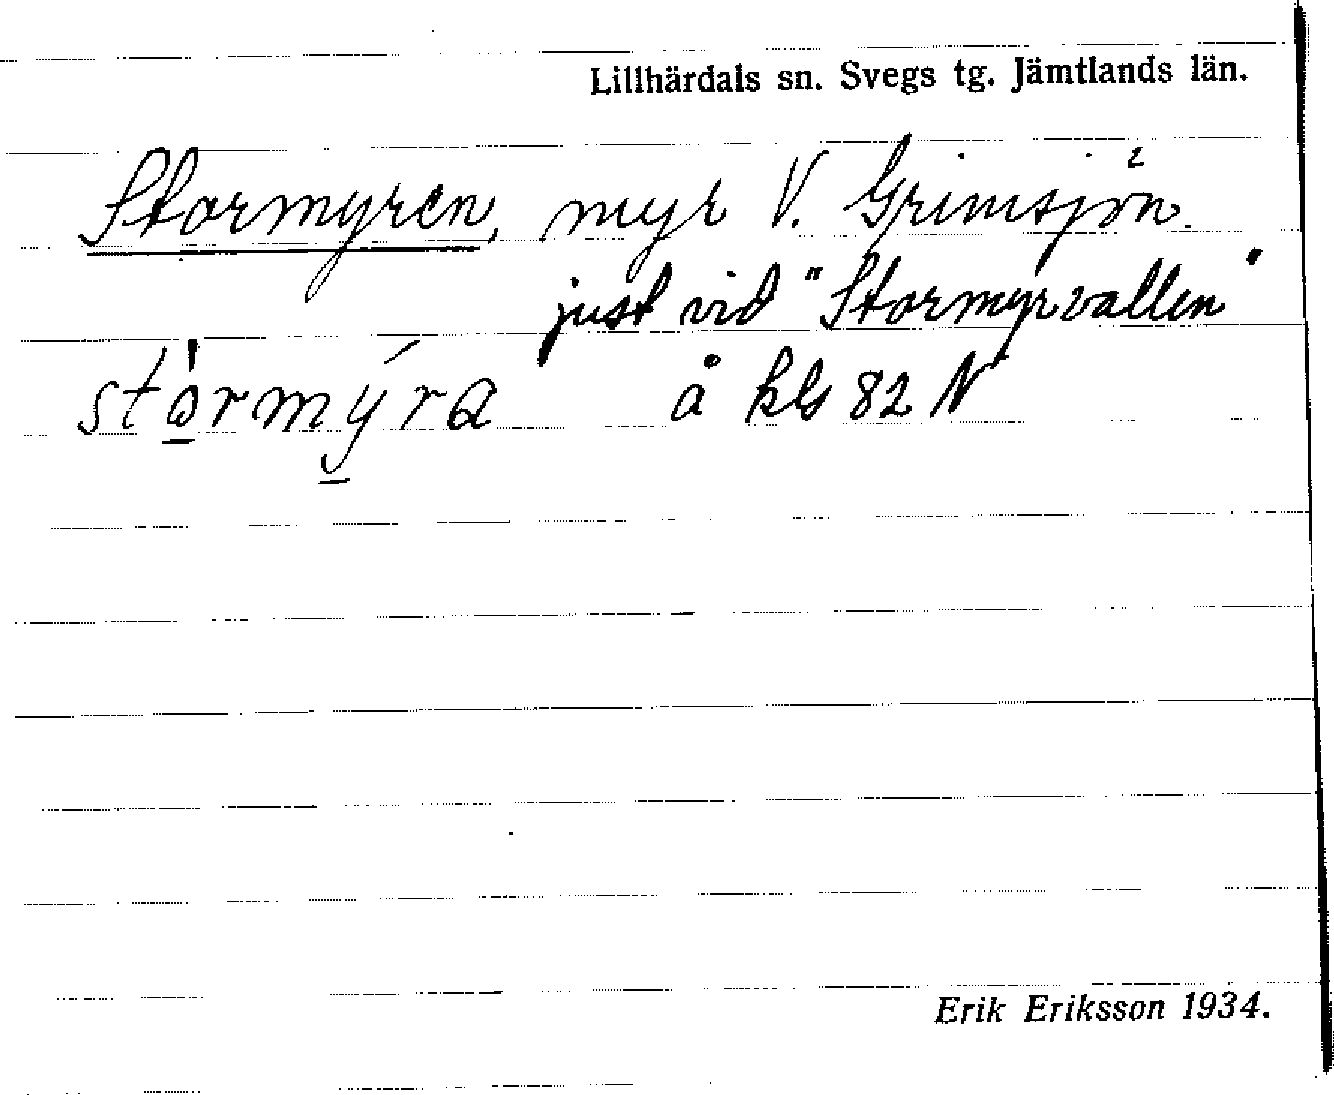 Lillhärdals sn. Svegs tg. Jämtlands län.
Stormyren, myr V. Grimsjön.
just vid "Stormyrvallen"
stòrmýra å kls 82 N
Erik Eriksson 1934.